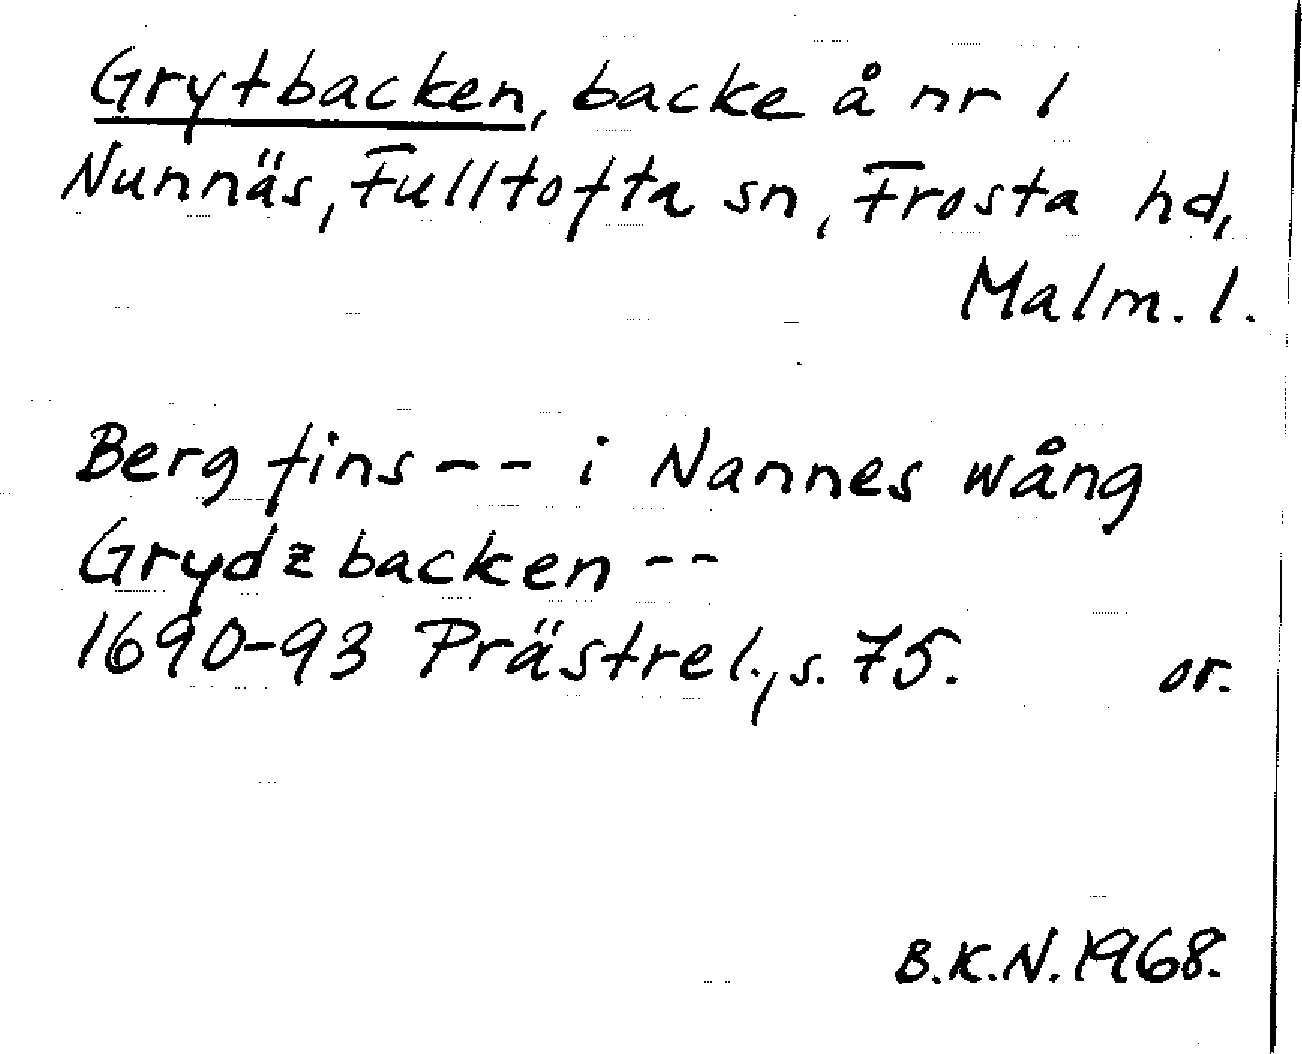 Grytbacken, backe å nr 1
Nunnäs, Fulltofta sn, Frosta hd,
Malm. l.
Berg fins -- i Nannes wång
Grydzbacken --
1690-93 Prästrel., s. 75. or.
B.K.N. 1968.